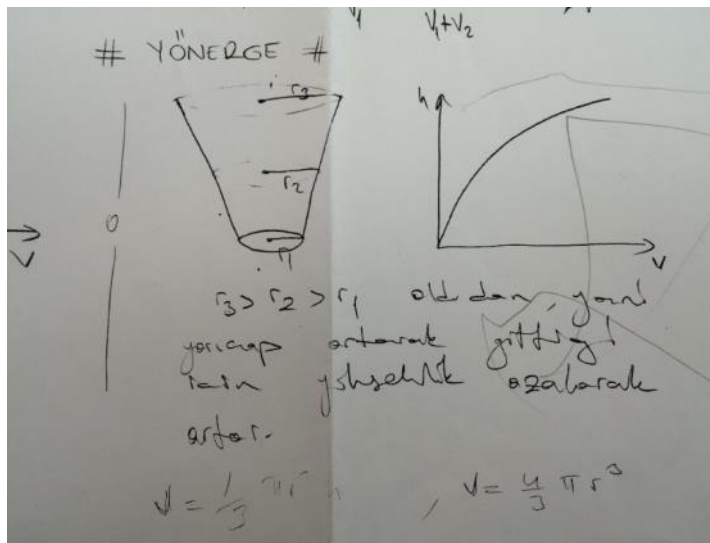 V₁ V₁+V₂
# YÖNERGE #
r₃
r₂
r₁
h
V
V
O
r₃ > r₂ > r₁ old.dan, yani
yarıçap artarak gittiği
için yükseklik azalarak
artar.
V = 1/3 πr² h , V = 4/3 π r³